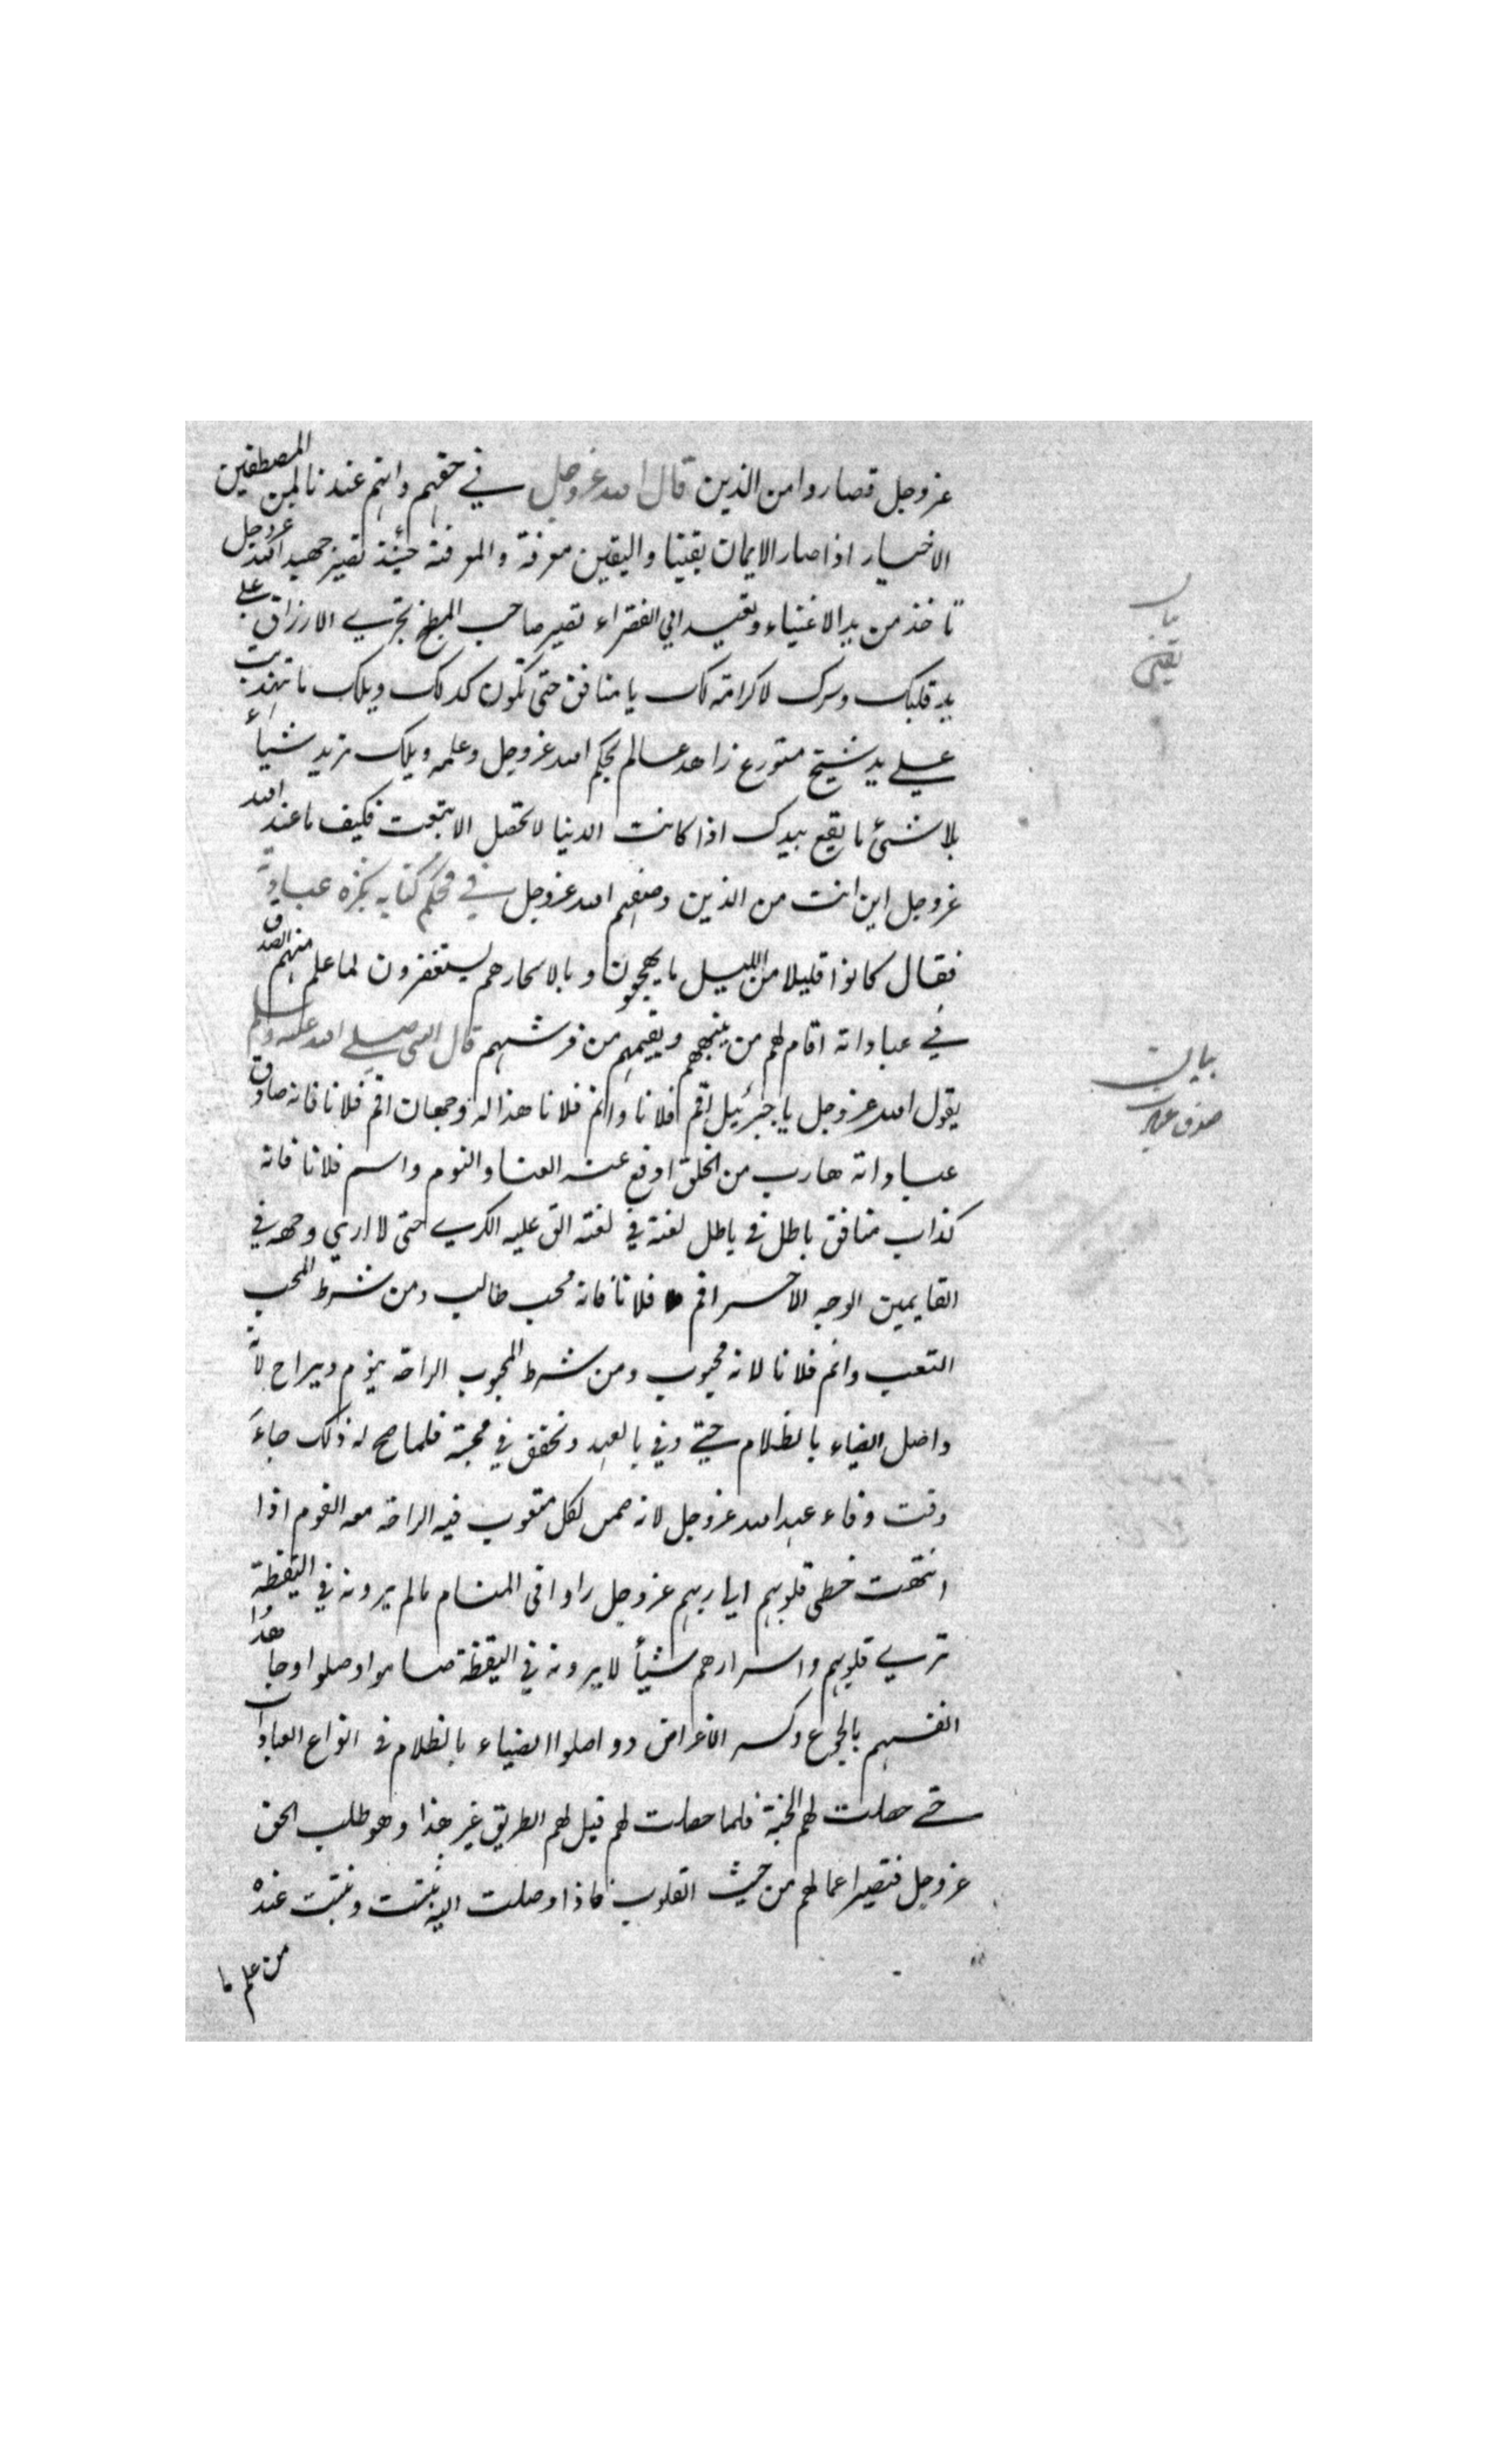 عز وجل فصاروا من الذين قال الله عز وجل في حقهم وانهم عندنا لمن المصطفين
الاخيار اذا صار الايمان يقينا واليقين معرفة والمعرفة حينئذ تصير جهبد الله عز وجل
تاخذ من يد الاغنياء وتعيد الي الفقراء تصير صاحب المطبخ تجري الارزاق علي
يد قلبك وسرك لا كرامة لك يا منافق حتى تكون كذلك ويلك ما تهذبت
علي يد شيخ متورع زاهد عالم بحكم الله عز وجل وعلمه ويلك تريد شيأ
بلا شئ ما يقع بيدك اذا كانت الدنيا لا تحصل الا بتعب فكيف ما عند الله
عز وجل اين انت من الذين وصفهم الله عز وجل في محكم كتابه بكثرة عبادة
فقال كانوا قليلا من الليل ما يهجعون وبالاسحار هم يستغفرون لما علم منهم الصدق
في عباداته اقام لهم من ينبههم ويقيمهم من فرشهم قال النبي صلي الله عليه وسلم
يقول الله عز وجل يا جبرئيل اقم فلانا وانم فلانا هذا له وجهان اقم فلانا فانه صادق
عباداته هارب من الخلق اوقع عنه العنا والنوم واسم فلانا فانه
كذاب منافق باطل في باطل لعنة في لعنة الق عليه الكري حتى لا اري وجهه في
القايمين الوجه الاخر اقم فلانا فانه محب طالب ومن شرط المحب
التعب وانم فلانا لانه محبوب ومن شرط المحبوب الراحة ينوم ويراح لانه
واصل الضياء بالظلام حتي وفي بالعهد وتحقق في محبة فلما صح له ذلك جاء
وقت وفاء عهد الله عز وجل لانه ضمن لكل متعوب فيه الراحة معه القوم اذا
انتهت خطى قلوبهم الي ربهم عز وجل راوا في المنام ما لم يرونه في اليقظة
تري قلوبهم واسرارهم شيأ لا يرونه في اليقظة صاموا وصلوا وجاهدوا
انفسهم بالجوع وكسر الاعراض وواصلوا الضياء بالظلام في انواع العبادات
حتي حصلت لهم الجنة فلما حصلت لهم قيل لهم الطريق غير هذا وهو طلب الحق
عز وجل فتصير اعمالهم من حيث القلوب فاذا وصلت اليه ثبتت ونبتت عنده
من علم ما
بيان
يقين
بيان
صدق عباد